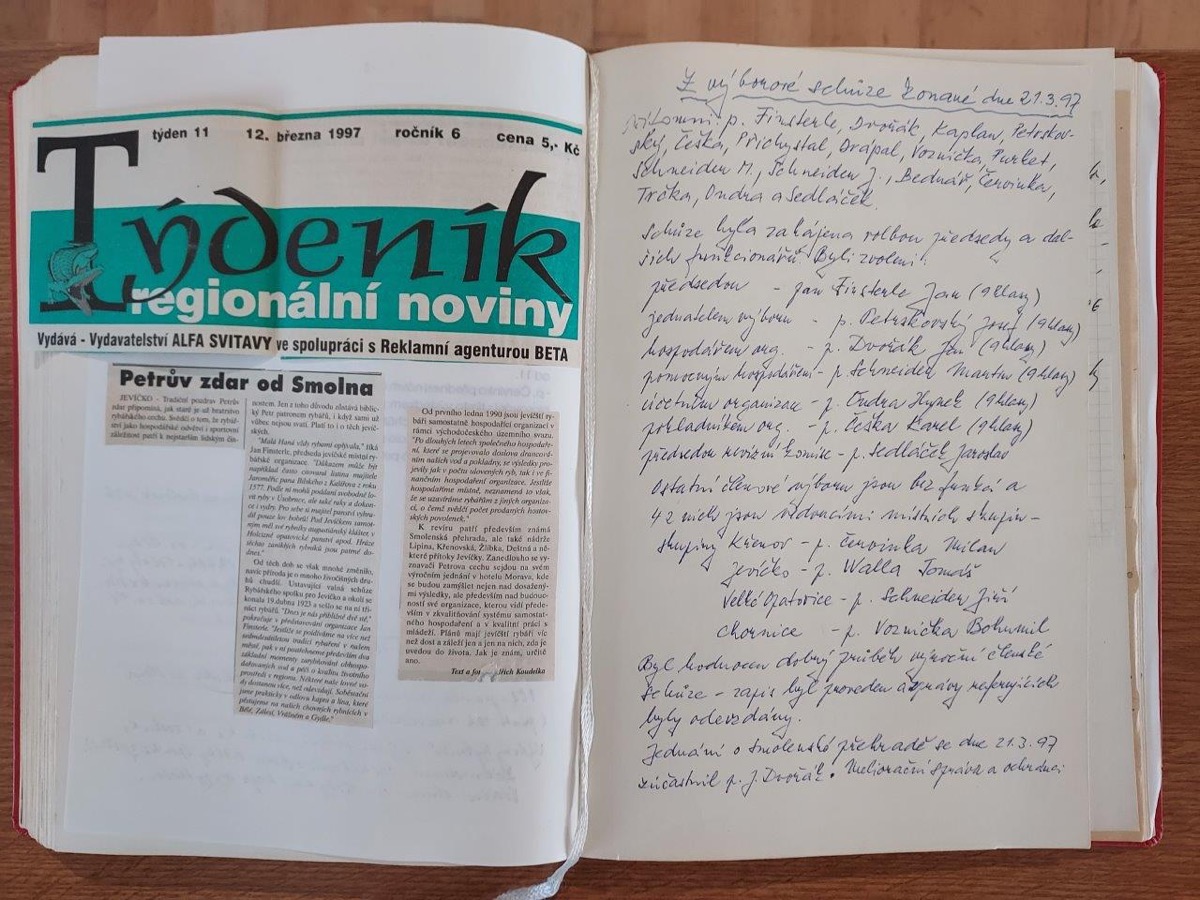 týden 11 12. března 1997 ročník 6 cena 5,- Kč
Týdeník
regionální noviny
Vydává - Vydavatelství ALFA SVITAVY ve spolupráci s Reklamní agenturou BETA
Petrův zdar od Smolna
JEVÍČKO - Tradiční pozdrav Petrův
zdar připomíná, jak staré je už bratrstvo
rybářského cechu. Svědčí o tom, že
jako hospodářské odvětví i sportovní
záležitost patří k nejstarším lidským čin-
nostem. Jen z toho důvodu zůstává biblic-
ký Petr patronem rybářů, i když sami už
vůbec nejsou svatí. Platí to i o těch jevíč-
ských.
"Malá Haná vždy rybami oplývala," říká
Jan Finsterle, předseda jevíčské místní ry-
bářské organizace. "Důkazem může být
například často citovaná listina majitele
Jaroměřic pana Bibského z Kajlířova z roku
1577. Podle ní mohli poddaní svobodně lo-
vit ryby v Úsobrnce, ale také raky a dokon-
ce i vydry. Pro sebe si majitel panství vyhra-
dil pouze lov bobrů! Pod Jevíčkem samot-
ným měl své rybníky augustinský klášter, v
Holozné opatovické panství apod. Hráze
těchto zaniklých rybníků jsou patrné do-
dnes."
Od těch dob se však mnohé změnilo,
navíc příroda je o mnoho živočišných dru-
hů chudší. Ustavující valná schůze
Rybářského spolku pro Jevíčko a okolí se
konala 19.dubna 1923 a sešlo se na ní tři-
náct rybářů. "Dnes je nás přibližně dvě stě,"
pokračuje v představování organizace Jan
Finsterle.
Bělé, Zálesí, Vrážném a Gydle."
Od prvního ledna 1990 jsou jevíčští ry-
báři samostatně hospodařící organizací v
rámci východočeského územního svazu.
"Po dlouhých letech společného hospodaře-
ní, které se projevovalo doslova drancová-
ním našich vod a pokladny, se výsledky pro-
jevily jak v počtu ulovených ryb, tak i ve fi-
nančním hospodaření organizace. Jestliže
hospodaříme místně, neznamená to však,
že se uzavíráme rybářům z jiných organiza-
cí, o čemž svědčí počet prodaných hostov-
ských povolenek."
K revíru patří především známá
Smolenská přehrada, ale také nádrže
Lipina, Křenovská, Žlíbka, Deštná a ně-
které přítoky Jevíčky. Zanedlouho se vy-
znavači Petrova cechu sejdou na svém
výročním jednání v hotelu Morava, kde
se budou zamýšlet nejen nad dosažený-
mi výsledky, ale především nad budouc-
ností své organizace, kterou vidí přede-
vším v zkvalitňování systému samostat-
ného hospodaření a v kvalitní práci s
mládeží. Plánů mají jevíčští rybáři víc
než dost a záleží jen a jen na nich, zda je
uvedou do života. Jak je znám, určitě
ano.
Koudelka
Z výborové schůze konané dne 21.3.97
Přítomni p. Finsterle, Dvořák, Kaplan, Petrskov-
ský, Češka, Přichystal, Drápal, Voznička, Furket,
Schneider M., Schneider J., Bednář, Červinka,
Trčka, Ondra a Sedláček.
Schůze byla zahájena volbou předsedy a dal-
ších funkcionářů. Byli zvoleni:
předsedou - Jan Finsterle Jan (9 hlasy)
jednatelem výboru - p. Petrskovský Josef (9 hlasy)
hospodářem org. - p. Dvořák Jan (9 hlasy)
pomocným hospodářem - p. Schneider Martin (9 hlasy)
účetním organizace - p. Ondra Hynek (9 hlasy)
pokladníkem org. - p. Češka Karel (9 hlasy)
předsedou revizní komise - p. Sedláček Jaroslav
Ostatní členové výboru jsou bez funkcí a
4 z nich jsou vedoucími místních skupin -
skupiny Křenov - p. Červinka Milan
Jevíčko - p. Walla Tomáš
Velké Opatovice - p. Schneider Jiří
Chornice - p. Voznička Bohumil
Byl hodnocen dobrý průběh výroční členské
schůze - zápis byl proveden a zprávy referujících
byly odevzdány.
Jednání o Smolenské přehradě se dne 21.3.97
zúčastnil p. J. Dvořák. Meliorační správa a ochránci